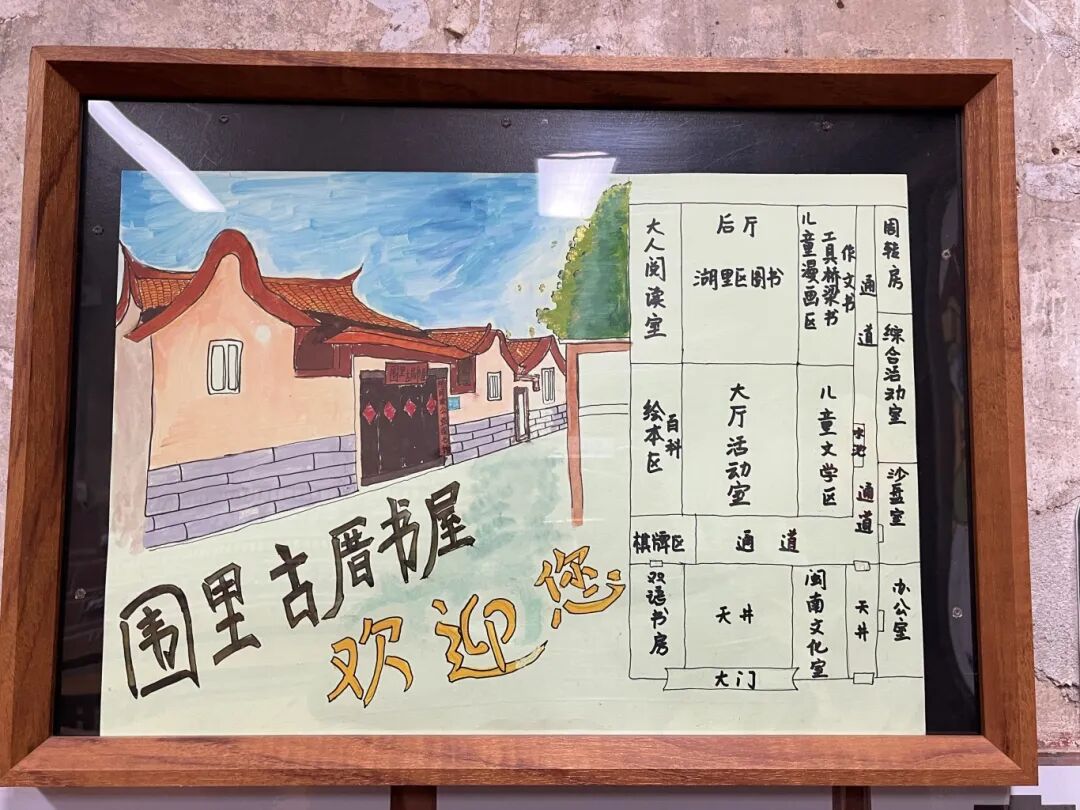 围里古厝书屋
欢迎您
大人阅读室
后厅
湖里区图书
儿童漫画区
工具桥梁书
作文书
通道
周转房
综合活动室
绘本区
百科
大厅活动室
儿童文学区
水池
通道
沙盘室
棋牌区
通道
双语书房
天井
闽南文化室
天井
办公室
大门